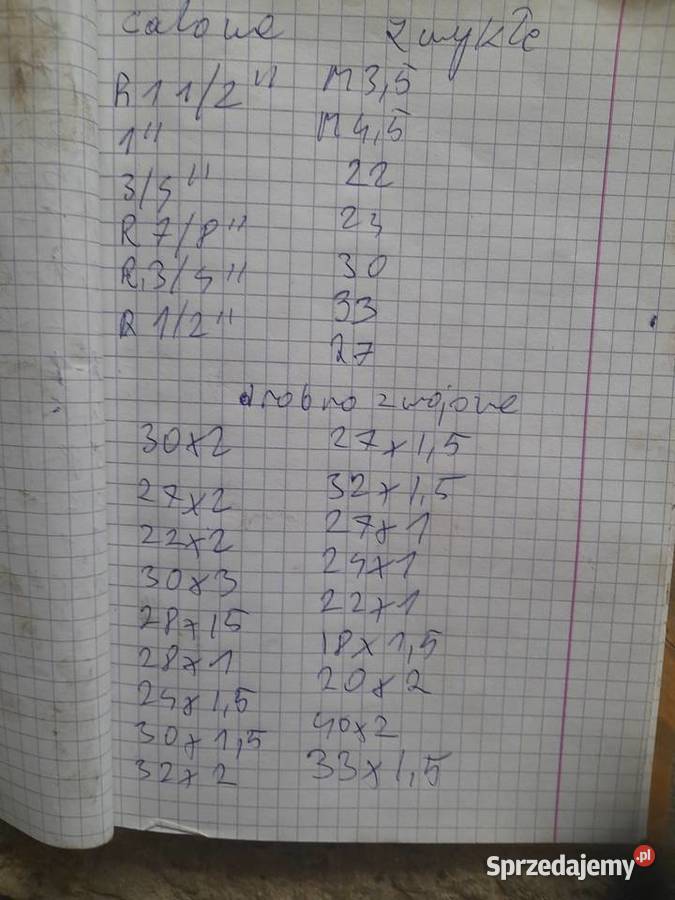 calowe zwykłe
R 1 1/2" M3,5
1" M4,5
3/4" 22
R 7/8" 23
R 3/4" 30
R 1/2" 33
27
drobno zwojowe
30x2 27x1,5
27x2 32x1,5
22x2 27x1
30x3 24x1
28x1,5 22x1
28x1 18x1,5
24x1,5 20x2
30x1,5 40x2
32x2 33x1,5
Sprzedajemy.pl